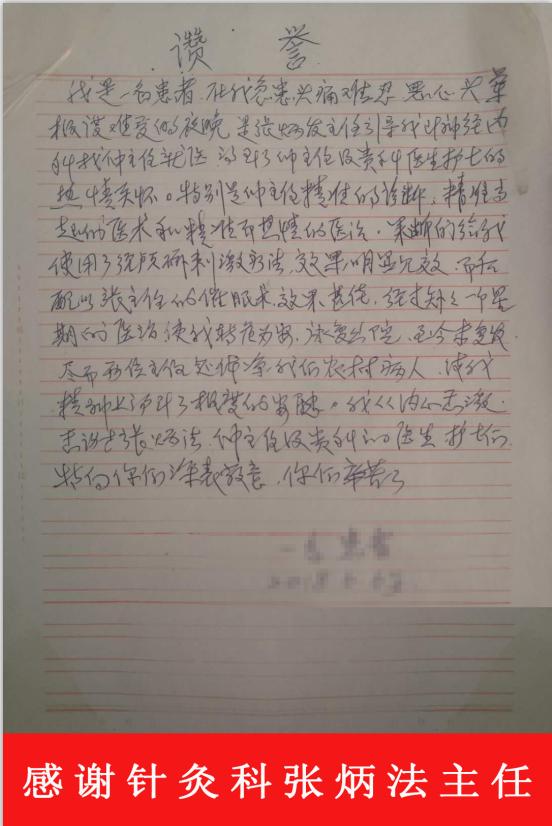 讚 誉
我是一名患者,在我急患头痛难忍,恶心头晕
极度难受的夜晚,是张炳发主任引导我到神经内
科找仲主任就医,得到了仲主任及贵科医生护士的
热情关怀。特别是仲主任精准的诊断,精准高
超的医术和精准而热情的医治。果断的给我
使用了经颅磁刺激疗法,效果明显见效,而和
配以张主任的催眠术,效果甚佳,经过短短一个星
期的医治使我转危为安,恢复出院,至今未复发
尽而两位主任处体谅我们农村病人,使我
精神上得到了极度的安慰。我从内心感激
感谢张炳法,仲主任及贵科的医生护士们
特向你们深表敬意,你们辛苦了
感谢针灸科张炳法主任